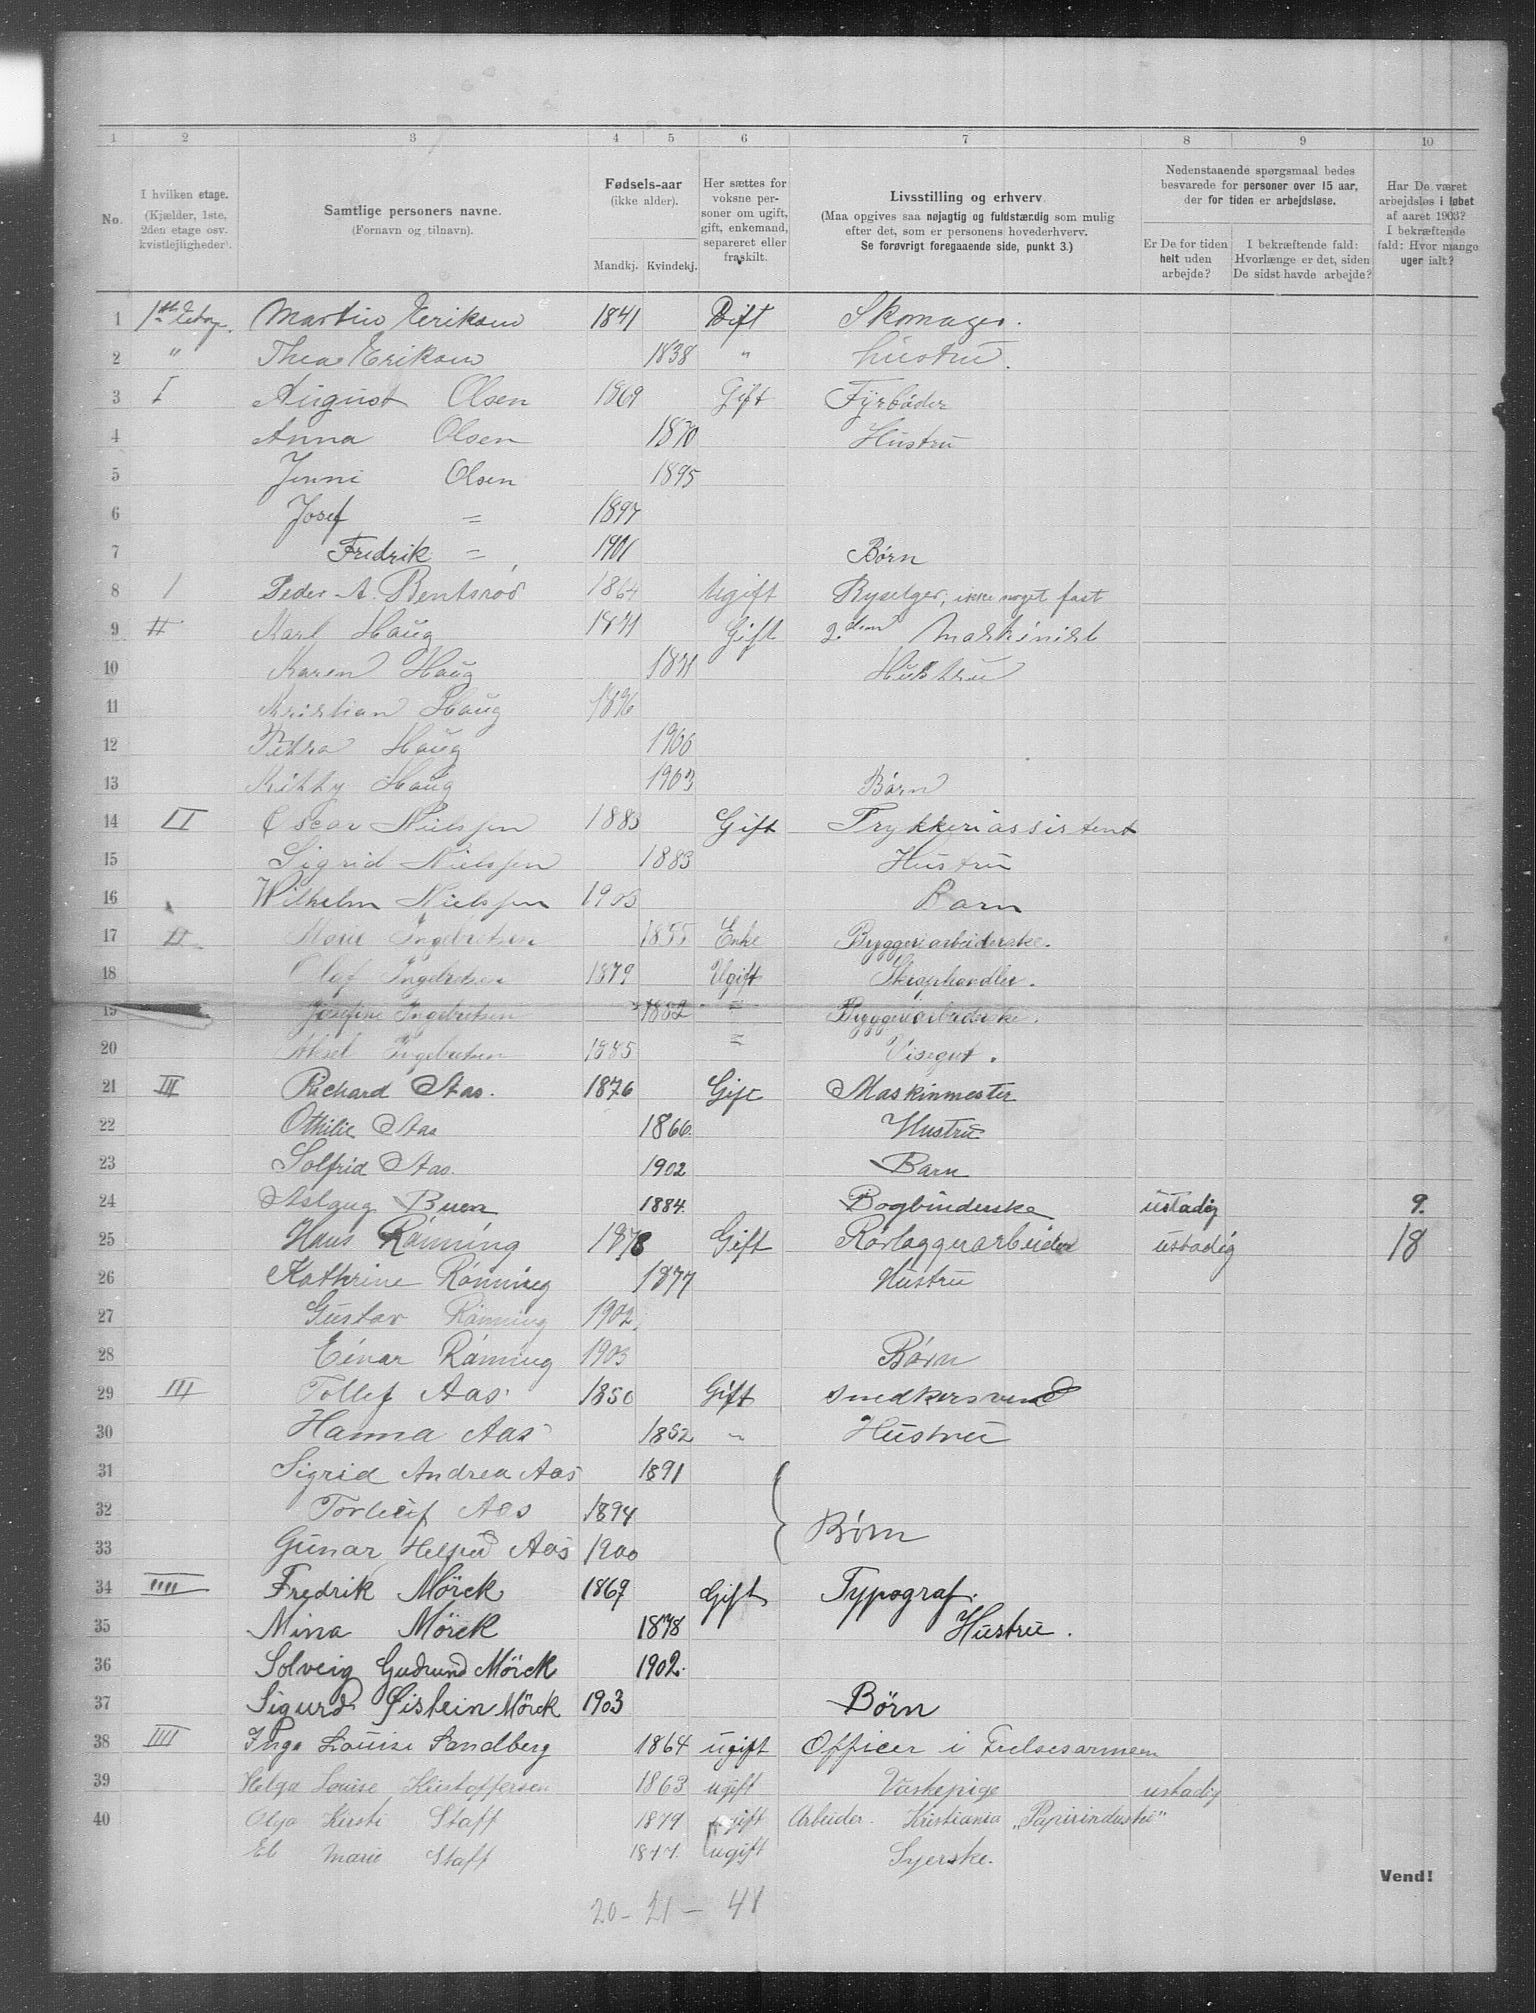 1 2 3 4 5 6 7 8 9 10
No.
I hvilken etage. (Kjælder, 1ste, 2den etage osv. kvistlejligheder).
Samtlige personers navne. (Fornavn og tilnavn).
Fødsels-aar (ikke alder). Mandkj. Kvindekj.
Her sættes for voksne personer om ugift, gift, enkemand, separeret eller fraskilt.
Livsstilling og erhverv. (Maa opgives saa nøjagtig og fuldstændig som mulig efter det, som er personens hovederhverv. Se forøvrigt foregaaende side, punkt 3.)
Nedenstaaende spørgsmaal bedes besvarede for personer over 15 aar, der for tiden er arbejdsløse.
Er De for tiden helt uden arbejde?
I bekræftende fald: Hvorlænge er det, siden De sidst havde arbejde?
Har De været arbejdsløs i løbet af aaret 1903? I bekræftende fald: Hvor mange uger ialt?
1 1ste Etage. Martin Eriksen 1841 Gift Skomager.
2 " Thea Eriksen 1838 " hustru.
3 I August Olsen 1869 Gift Fyrbøder
4 Anna Olsen 1870 Hustru
5 Jenni Olsen 1895
6 Josef = 1897
7 Fredrik = 1901 Børn
8 / Peder A. Bentsrød 1864 Ugift Byselger, ikke noget fast
9 II Karl Haug 1871 Gift 2.den Maskinist
10 Karen Haug 1871 Hustru
11 Kristian Haug 1896
12 Petra Haug 1900
13 Kitty Haug 1903 Børn
14 II Oscar Nielssen 1883 Gift Trykkeriassistent
15 Sigrid Nielssen 1883 Hustru
16 Wilhelm Nielssen 1903 Barn
17 II Marie Ingebretsen 1855 Enke Bryggeriarbeiderske.
18 Olaf Ingebretsen 1879 Ugift Skraphandler.
19 Josefine Ingebretsen 1882 " = Bryggeriarbeiderske.
20 Aksel Ingebretsen 1885 = Visergut.
21 III Richard Aas. 1876 Gift Maskinmester
22 Othilie Aas 1866. Hustru
23 Solfrid Aas. 1902 Barn
24 Aslaug Buen 1884. Bogbinderske ustadig 9.
25 Hans Rønning 1878 Gift Rørlæggerarbeider ustadig 18
26 Kathrine Rønning 1877 Hustru
27 Gustav Rønning 1902.
28 Einar Rønning 1903 Børn
29 III Tollef Aas 1850 Gift snedkersvend
30 Hanna Aas 1852 " Hustru
31 Sigrid Andrea Aas 1891
32 Torleif Aas 1894 Børn
33 Gunar Helfred Aas 1900
34 IIII Fredrik Mörck 1869 Gift Typograf.
35 Mina Mörck 1878 Hustru.
36 Solveig Gudrund Mörck 1902.
37 Sigurd Øistein Mörck 1903 Börn
38 IIII Inga Louise Sandberg 1864 ugift Officer i Frelsesarmeen
39 Helga Louise Kristoffersen 1863 ugift Vaskepige ustadig
40 Olga Kirsti Staff 1879 ugift Arbeider. Kristiania "Papirindustri"
Marie Staff 1877. ugift Syerske.
Vend!
20 - 21 - 41